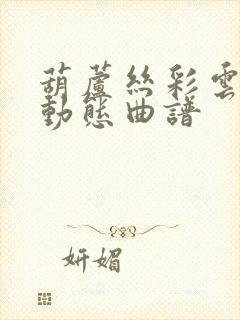 葫蘆絲彩雲
動態曲譜
妍媚